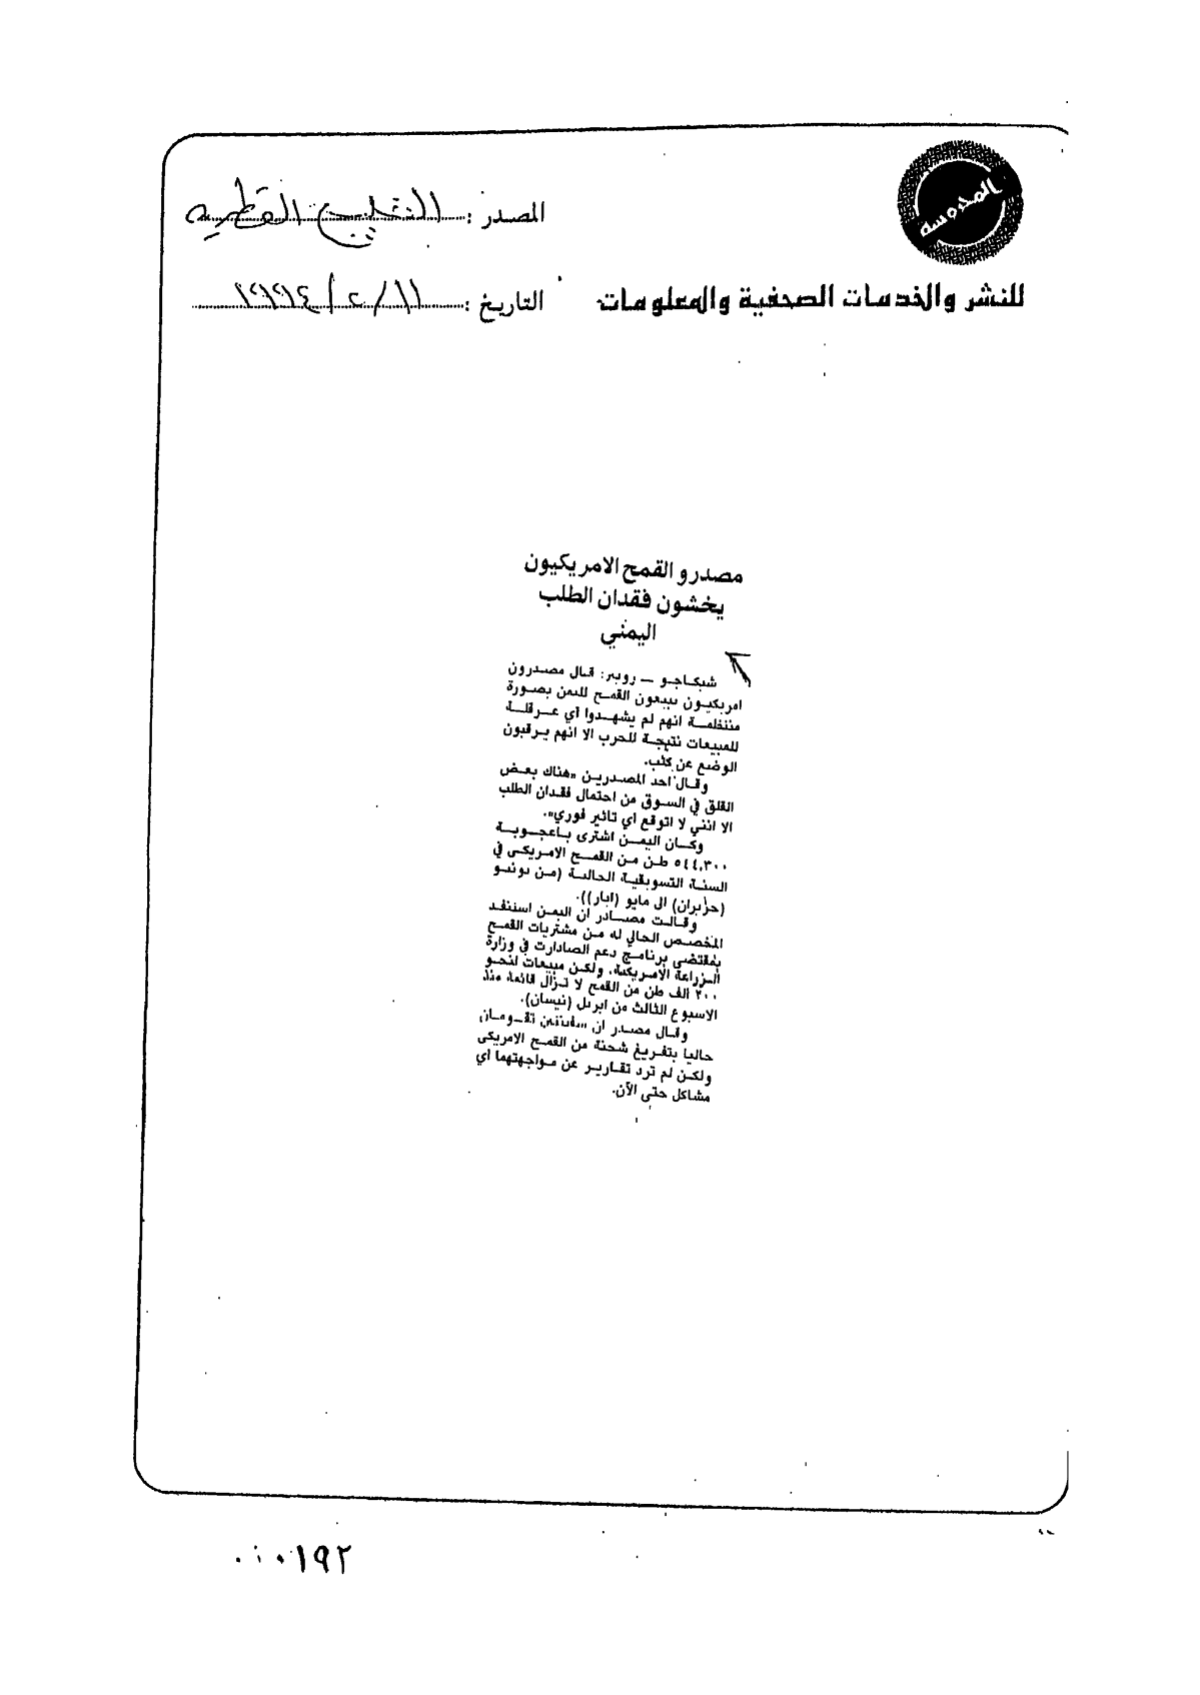 المحروسة
للنشر والخدمات الصحفية والمعلومات
المصدر : القطرية
التاريخ : ١١ / /
مصدرو القمح الامريكيون
يخشون فقدان الطلب
اليمني
شيكاجو - رويتر: قال مصدرون
امريكيون يبيعون القمح لليمن بصورة
منتظمة انهم لم يشهدوا أي عرقلة
للمبيعات نتيجة للحرب الا انهم يرقبون
الوضع عن كثب.
وقال احد المصدرين «هناك بعض
القلق في السوق من احتمال فقدان الطلب
الا انني لا اتوقع اي تاثير فوري».
وكان اليمن اشترى باعجوبة
٥٤٤,٣٠٠ طن من القمح الامريكي في
السنة التسويقية الحالية (من يونيو
(حزيران) الى مايو (ايار)).
وقالت مصادر ان اليمن استنفد
المخصص الحالي له من مشتريات القمح
بمقتضى برنامج دعم الصادارت في وزارة
الزراعة الامريكية، ولكن مبيعات لنحو
٢٠٠ الف طن من القمح لا تزال قائمة منذ
الاسبوع الثالث من ابريل (نيسان).
وقال مصدر ان سفينتين تقومان
حاليا بتفريغ شحنة من القمح الامريكي
ولكن لم ترد تقارير عن مواجهتهما اي
مشاكل حتى الآن.
٠٠٠١٩٢